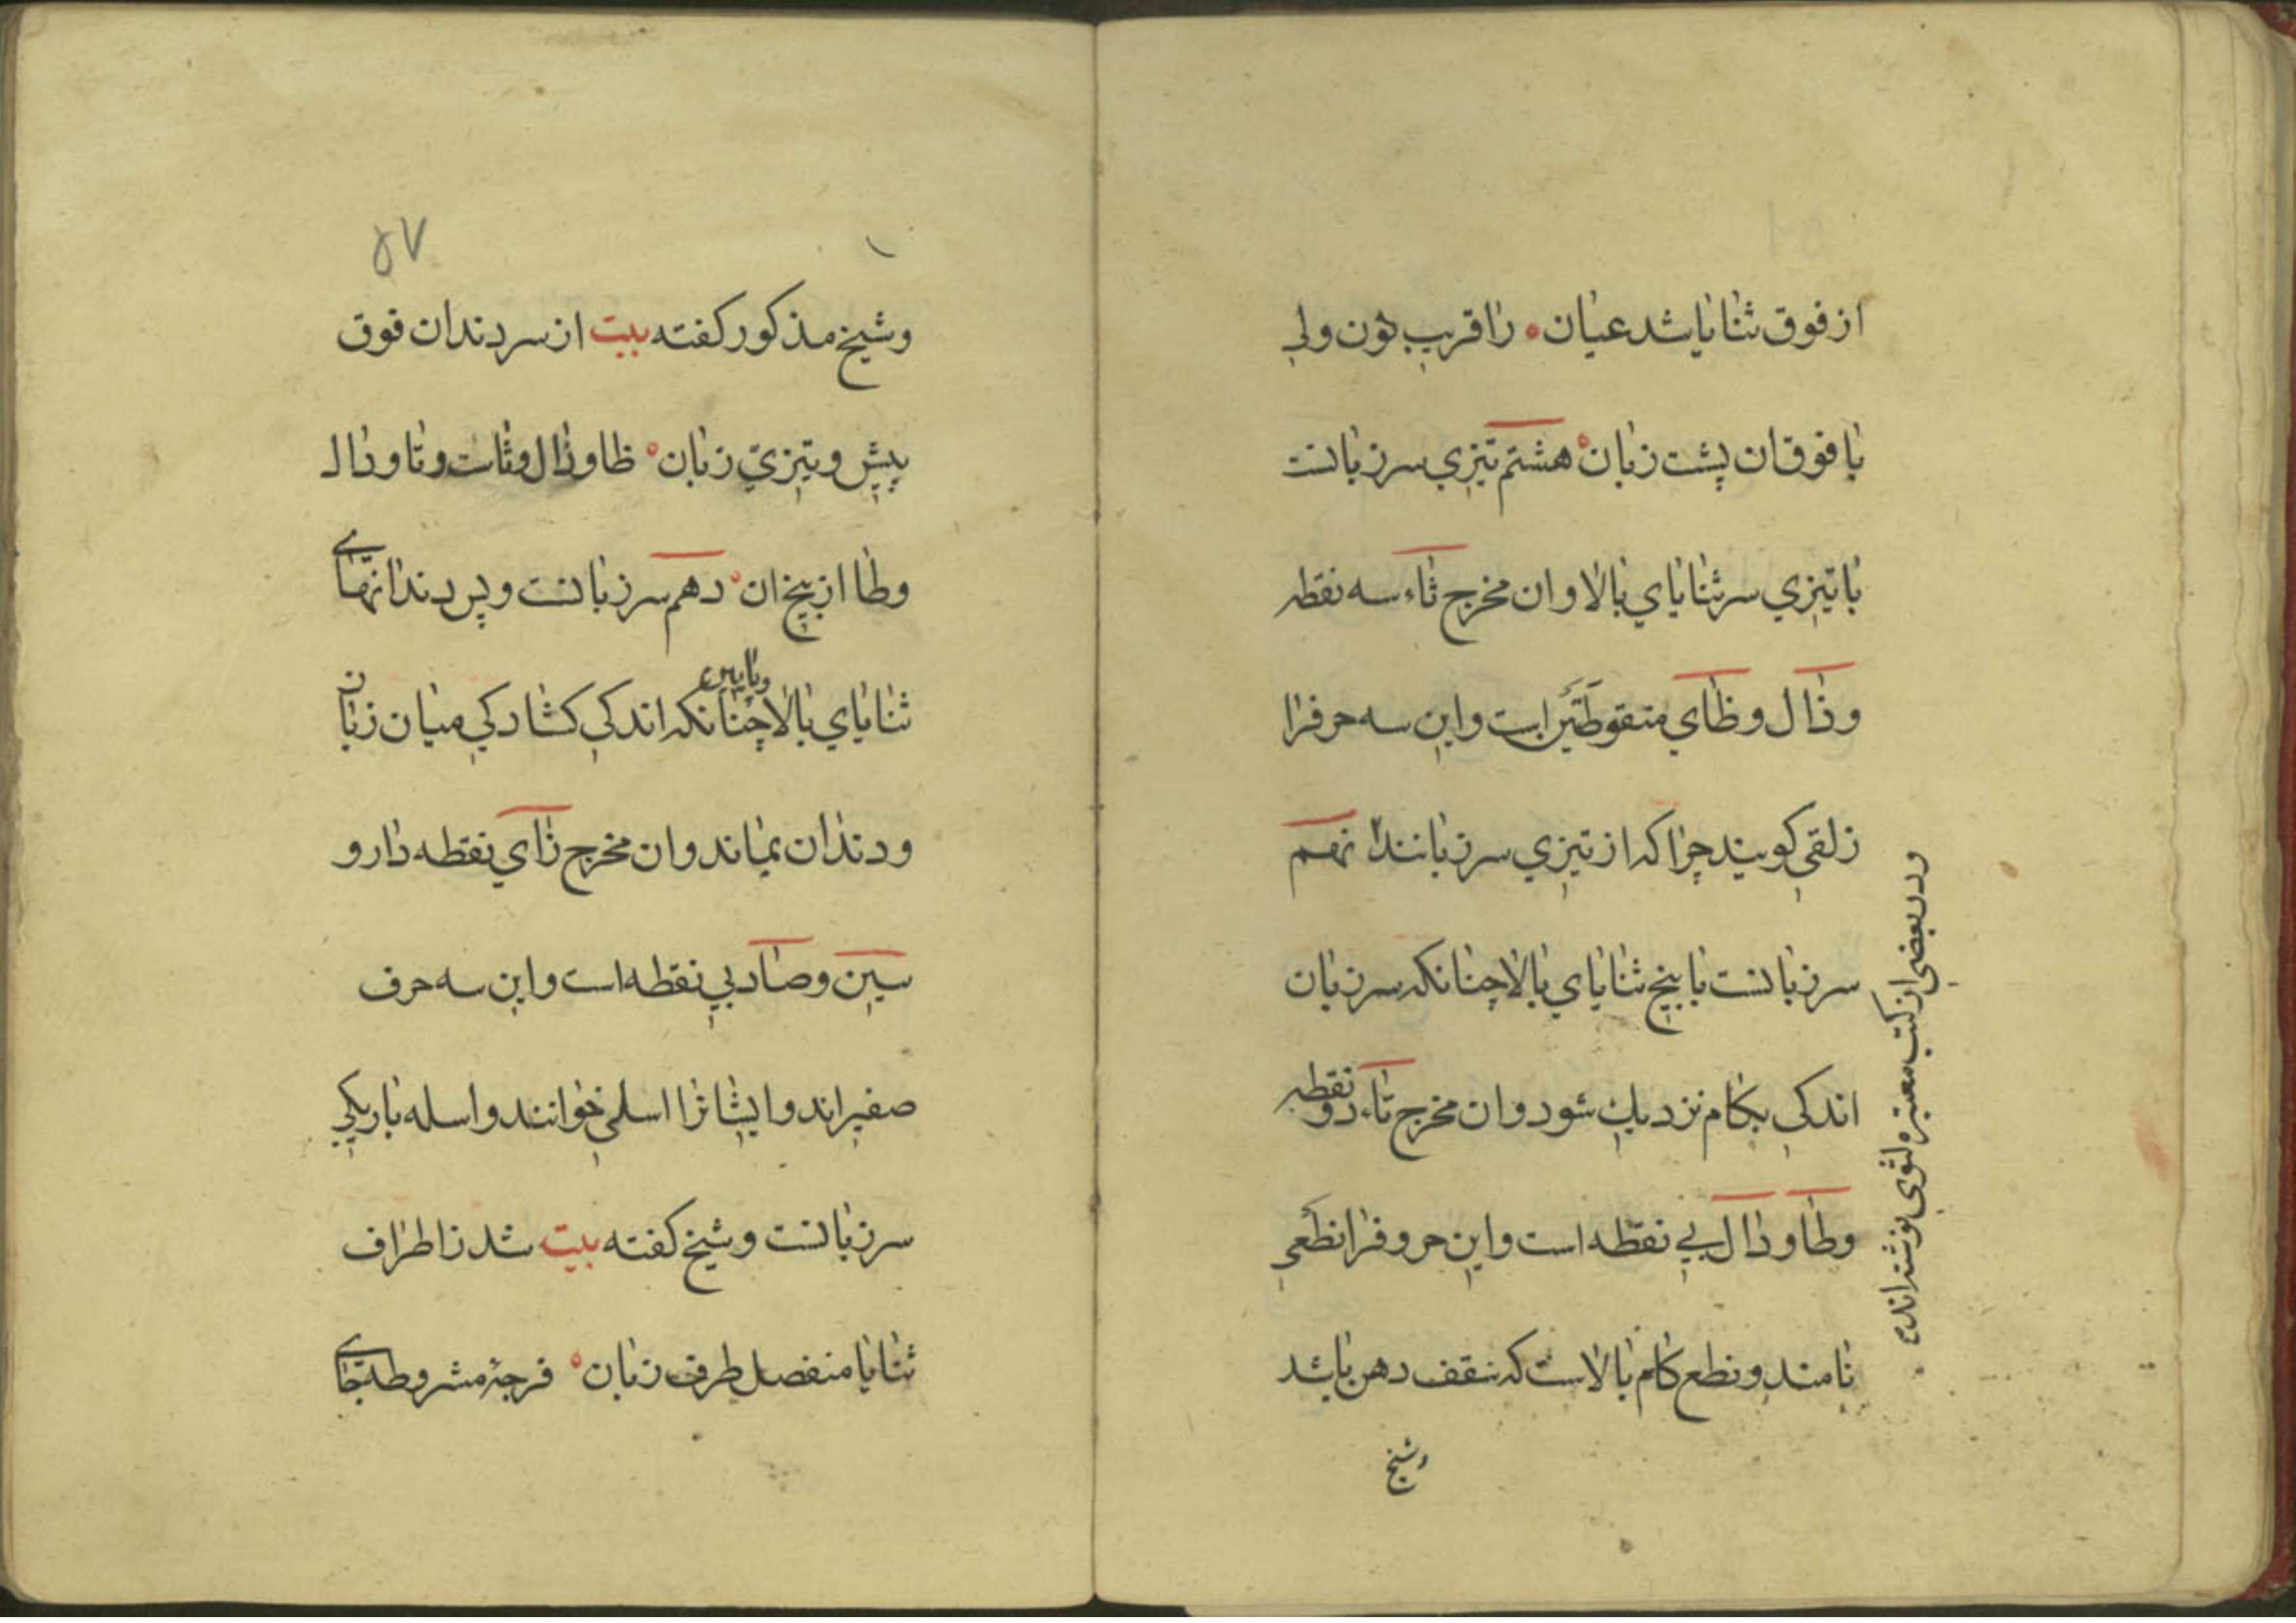 از فوق ثنایا شد عیان ۰ را قریب نون ولی
با فوقان پشت زبان ۰ هشتم تیزی سر زبانست
با تیزی سر ثنایای بالا و ان مخرج ثاء سه نقطه
و ذال و ظای منقوطتین است و این سه حرفرا
زلقی کویند چرا که از تیزی سر زبانند نهم
سر زبانست با بیخ ثنایای بالا چنانکه سر زبان
اندکی بکام نزدیك شود و ان مخرج تاء دو نقطه
و طا و دال بی نقطه است و این حروفرا نطعی
نامند و نطع کام بالاست که سقف دهن باشد
وشیخ
و در بعضی از کتب معتبره لثوی نوشته اند
۵۷
وشیخ مذکور کفته بیت از سر دندان فوق
پیش و تیزی زبان ۰ ظا و ذال و ثاست و تا و دال
وطا از بیخ ان ۰ دهم سر زبانست و پس دندانهای
ثنایای بالا و پایین چنانکه اندکی کشادکی میان زبان
و دندان بماند و ان مخرج زای نقطه دار و
سین و صاد بی نقطه است و این سه حرف
صفیراند و ایشانرا اسلی خوانند و اسله باریکی
سر زبانست و شیخ کفته بیت شد ز اطراف
ثنایا منفصل طرف زبان ۰ فرجۀ مشروطه